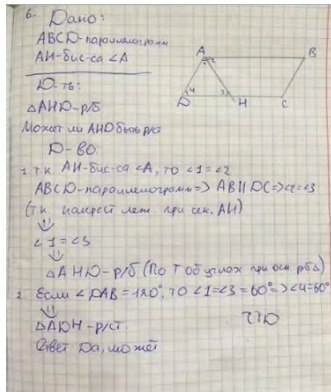 6. Дано:
ABCD-параллелограмм
AH-бис-са ∠A
D-ть:
△AHD-р/б
Может ли AHD быть р/ст
D-во:
A
B
1
2
D
4
3
H
C
1. т.к. AH-бис-са ∠A, то ∠1=∠2
ABCD-параллелограмм=> AB||DC=>∠2=∠3
(т.к. накрест леж. при сек. AH)
⇓
∠1=∠3
⇓
△AHD-р/б (По т об углах при осн р/б△)
2. Если ∠DAB=120°, то ∠1=∠3=60°=>∠4=60°
⇓
△ADH-р/ст.
ЧТД
Ответ Да, может